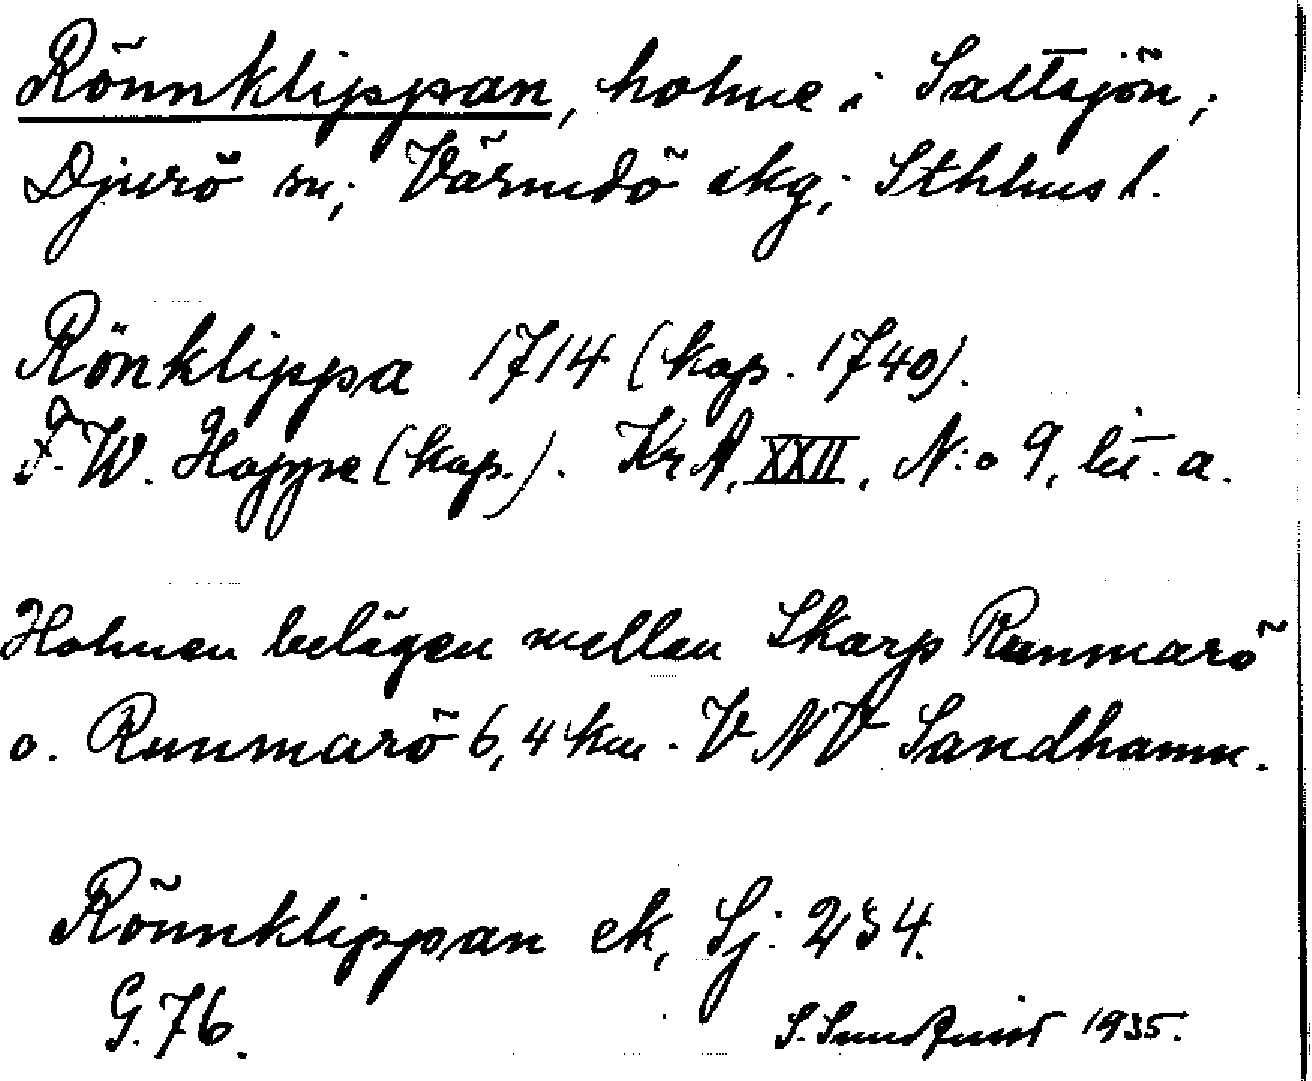 Rönnklippan, holme i Saltsjön;
Djurö sn; Värmdö skg; Sthlms l.
Rönklippa 1714 (kop. 1740).
F. W. Hoppe (kop.). KrA, XXII, N:o 9, litt. a.
Holmen belägen mellan Skarp Runmarö
o. Runmarö 6,4 km. V NV Sandhamn.
Rönnklippan ek, Sj: 234.
G. 76.
S. Sundquist 1935.